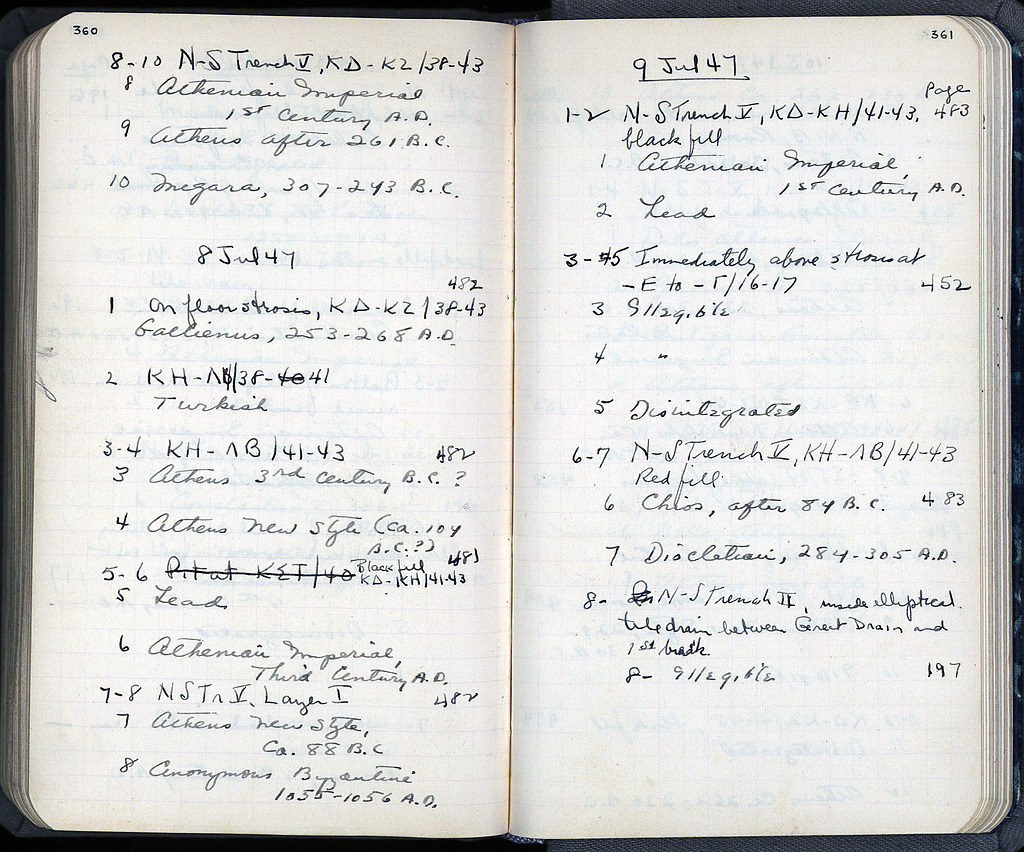 360
8-10 N-S Trench V, KΔ-KZ/38-43
8 Athenian Imperial
1st Century A.D.
9 Athens after 261 B.C.
10 Megara, 307-243 B.C.
8 Jul 47
482
1 On floor strosis, KΔ-KZ/38-43
Gallienus, 253-268 A.D.
2 KH-Λ/38-40 41
Turkish
3-4 KH-ΛB/41-43 482
3 Athens 3rd century B.C.?
4 Athens New Style (Ca. 104
B.C.?)
481
5-6 Pit at KΣT/40 Black fill
KΔ-KH/41-43
5 Lead
6 Athenian Imperial,
Third Century A.D.
7-8 NSTr V, Layer I 482
7 Athens New Style,
Ca. 88 B.C
8 Anonymous Byzantine
1055-1056 A.D.
361
9 Jul 47
Page
1-2 N-S Trench V, KΔ-KH/41-43, 483
black fill
1 Athenian Imperial,
1st Century A.D.
2 Lead
3-5 Immediately above strosis at
-E to -T/16-17 452
3 Illegible
4 "
5 Disintegrated
6-7 N-S Trench V, KH-ΛB/41-43
Red fill
6 Chios, after 84 B.C. 483
7 Diocletian, 284-305 A.D.
8- N-S Trench II, inside elliptical
tile drain between Great Drain and
1st
8- Illegible 197